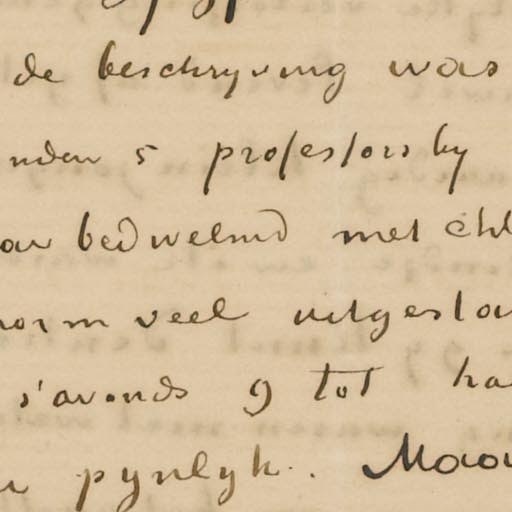 de beschryving was
nden 5 professors by
bedwelmd met chl
norm veel uitgesta
s'avonds 9 tot ha
pynlyk. Maa